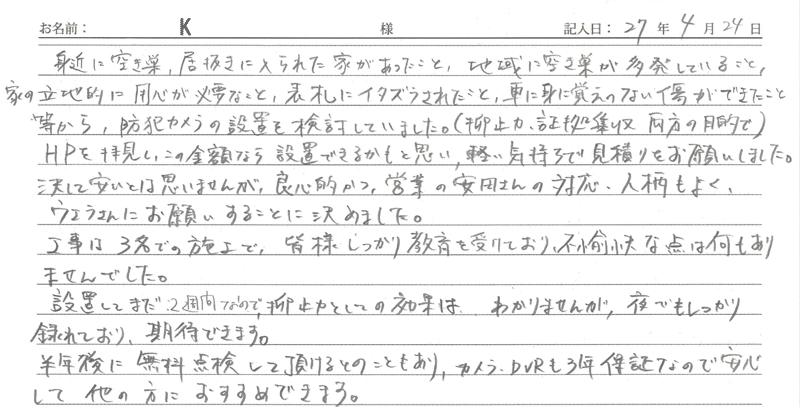 お名前: K 様 記入日: 27年 4月 24日
身近に空き巣,居抜きに入られた家があったこと,地域に空き巣が多発していること,
家の立地的に用心が必要なこと,表札にイタズラされたこと,車に身に覚えのない傷ができたこと
等から,防犯カメラの設置を検討していました。(抑止力、証拠集収 両方の目的で)
HPを拝見し,この金額なら設置できるかもと思い,軽い気持ちで見積りをお願いしました。
決して安いとは思いませんが,良心的かつ,営業の安田さんの対応・人柄もよく、
ウエラさんにお願いすることに決めました。
工事は3名での施工で,皆様しっかり教育を受けており,不愉快な点は何もあり
ませんでした。
設置してまだ2週間なので,抑止力としての効果は わかりませんが,夜でもしっかり
録れており、期待できます。
半年後に無料点検して頂けるとのこともあり,カメラ・DVRも3年保証なので安心
して他の方におすすめできます。